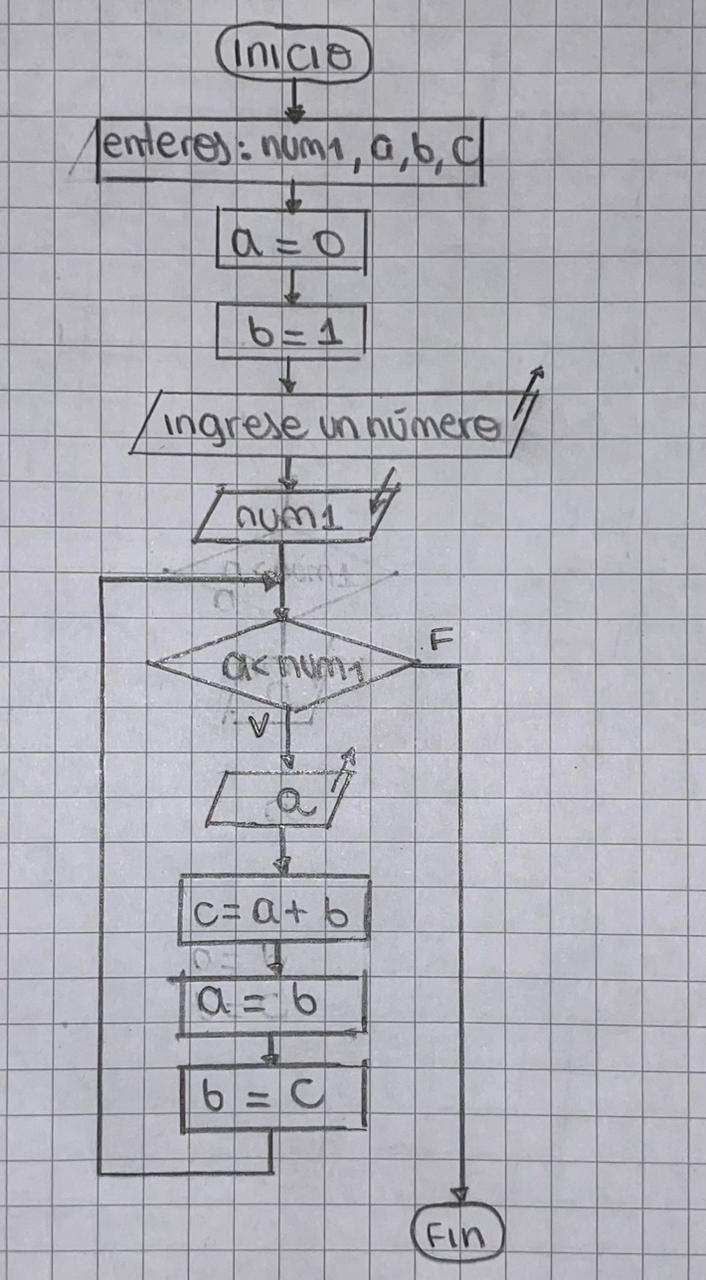 INICIO
enteros: num1, a, b, c
a = 0
b = 1
ingrese un número
num1
a < num1
F
V
a
c = a + b
a = b
b = c
Fin